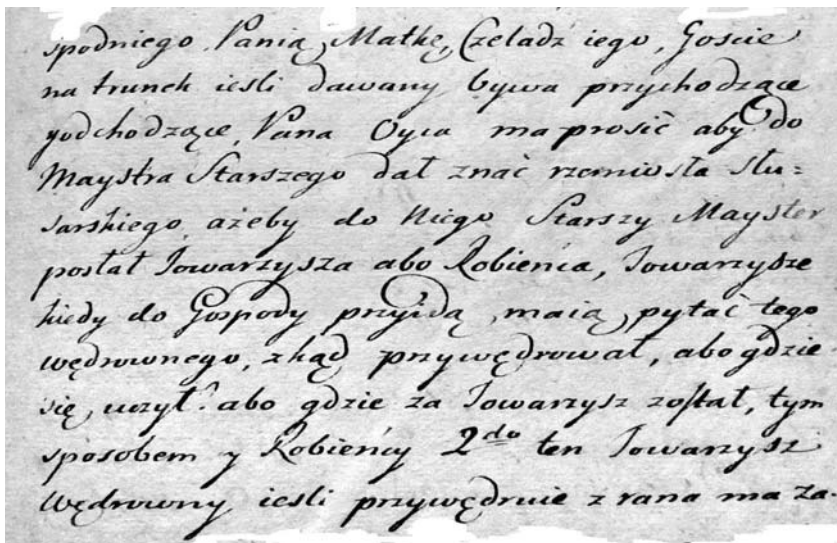 spodniego, Panią, Matkę, Czeladź iego, Goscie
na trunek iesli dawany bywa przychodzące
yodchodzące, Pana Oyca ma prosić aby do
Maystra Starszego dał znać rzemiosła slu=
sarskiego, ażeby do Niego Starszy Mayster
posłał Towarzysza abo Robieńca, Towarzysze
kiedy do Gospody przyidą, maią pytać tego
wędrownego, zkąd przywędrował, abo gdzie
się uczył? abo gdzie za Towarzysz został, tym
sposobem y Robieńcy 2do ten Towarzysz
Wędrowny iesli przywędruie z rana ma za-